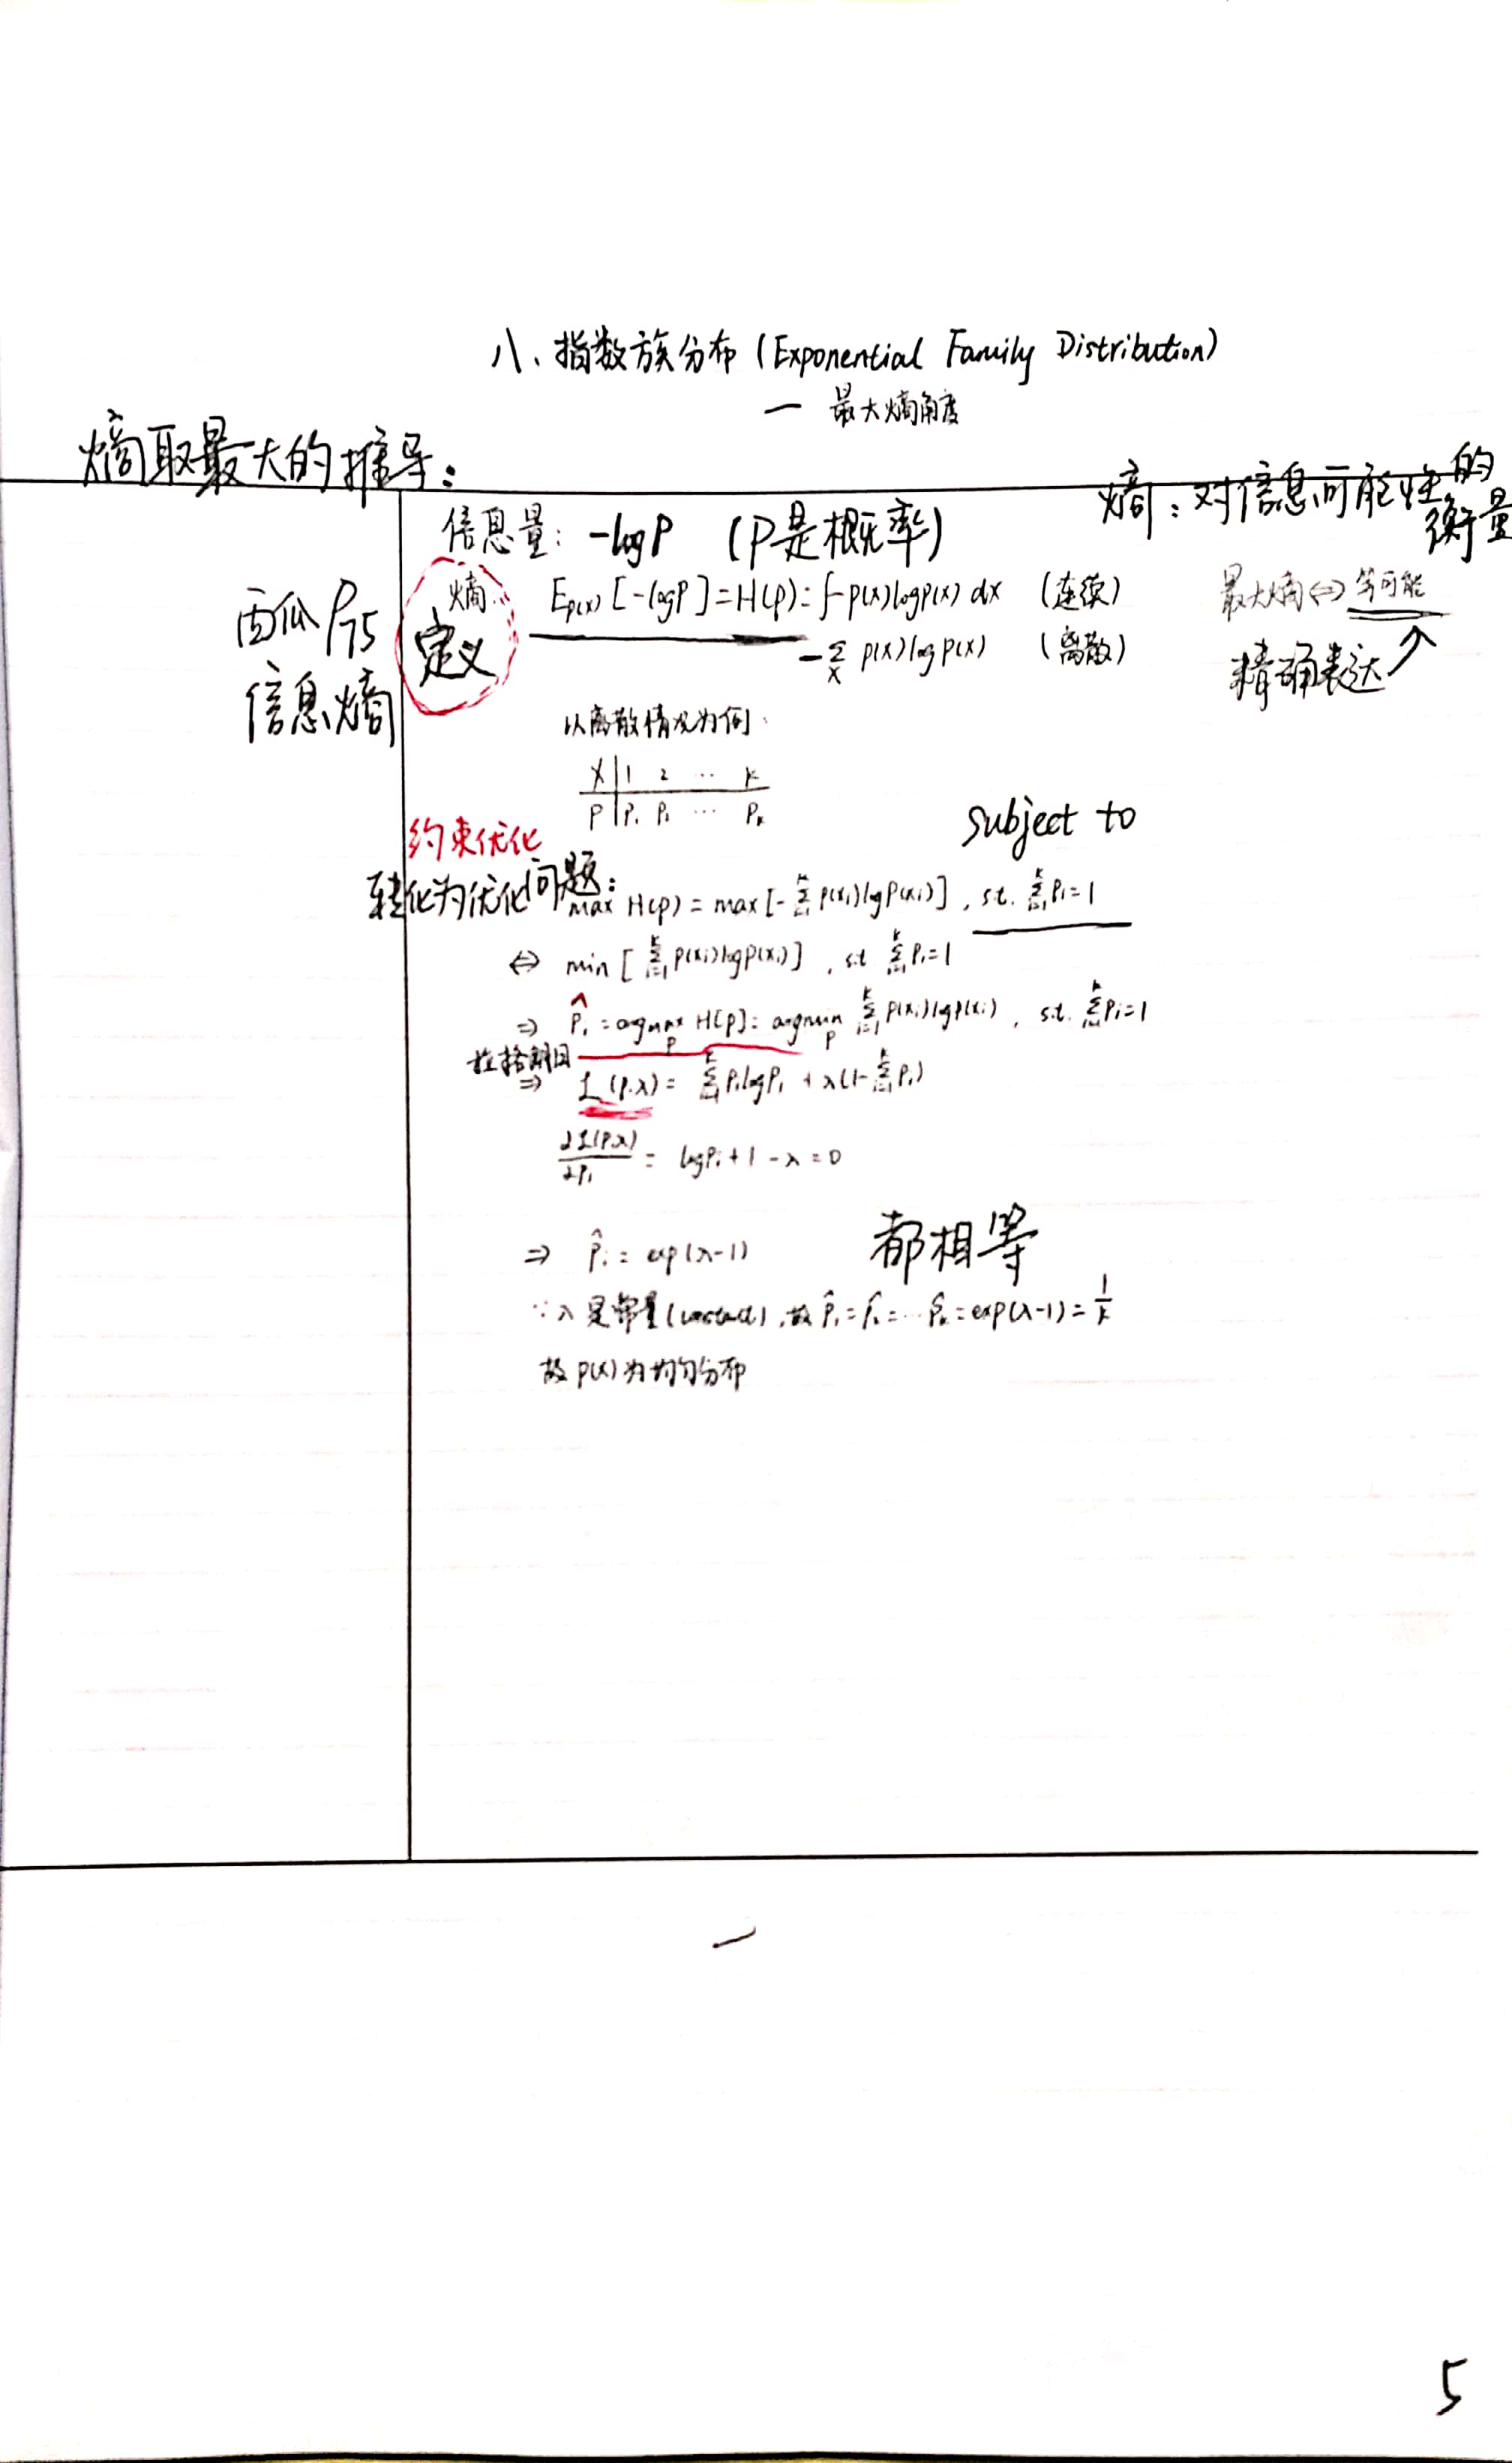 八、指数族分布 (Exponential Family Distribution)
— 最大熵角度
熵取最大的推导：
熵：对信息可能性的衡量
信息量： -logP （P是概率）
西瓜 P75
信息熵
熵：
定义
E_{p(x)} [-logP] = H(p) = ∫-p(x)logp(x) dx （连续）
-∑_x p(x)logp(x) （离散）
最大熵⇔等可能
精确表达
以离散情况为例：
X | 1 2 ⋯ k
P | P₁ P₂ ⋯ Pₖ
subject to
约束优化
转化为优化问题：
max H(p) = max [-∑_{i=1}^k p(xᵢ)logp(xᵢ)] , s.t. ∑_{i=1}^k pᵢ=1
⇔ min [∑_{i=1}^k p(xᵢ)logp(xᵢ)] , s.t ∑_{i=1}^k pᵢ=1
⇒ p̂ᵢ = argmax_p H(p) = argmin_p ∑_{i=1}^k p(xᵢ)logp(xᵢ) , s.t. ∑_{i=1}^k pᵢ=1
拉格朗日
⇒ L(p.λ) = ∑_{i=1}^k pᵢlogpᵢ + λ(1-∑_{i=1}^k pᵢ)
∂L(p.λ)/∂pᵢ = logpᵢ+1-λ=0
⇒ p̂ᵢ = exp(λ-1)
都相等
∵λ是常量(constant),故 p̂₁=p̂₂=⋯p̂ₖ=exp(λ-1)=1/k
故p(x)为均匀分布
5